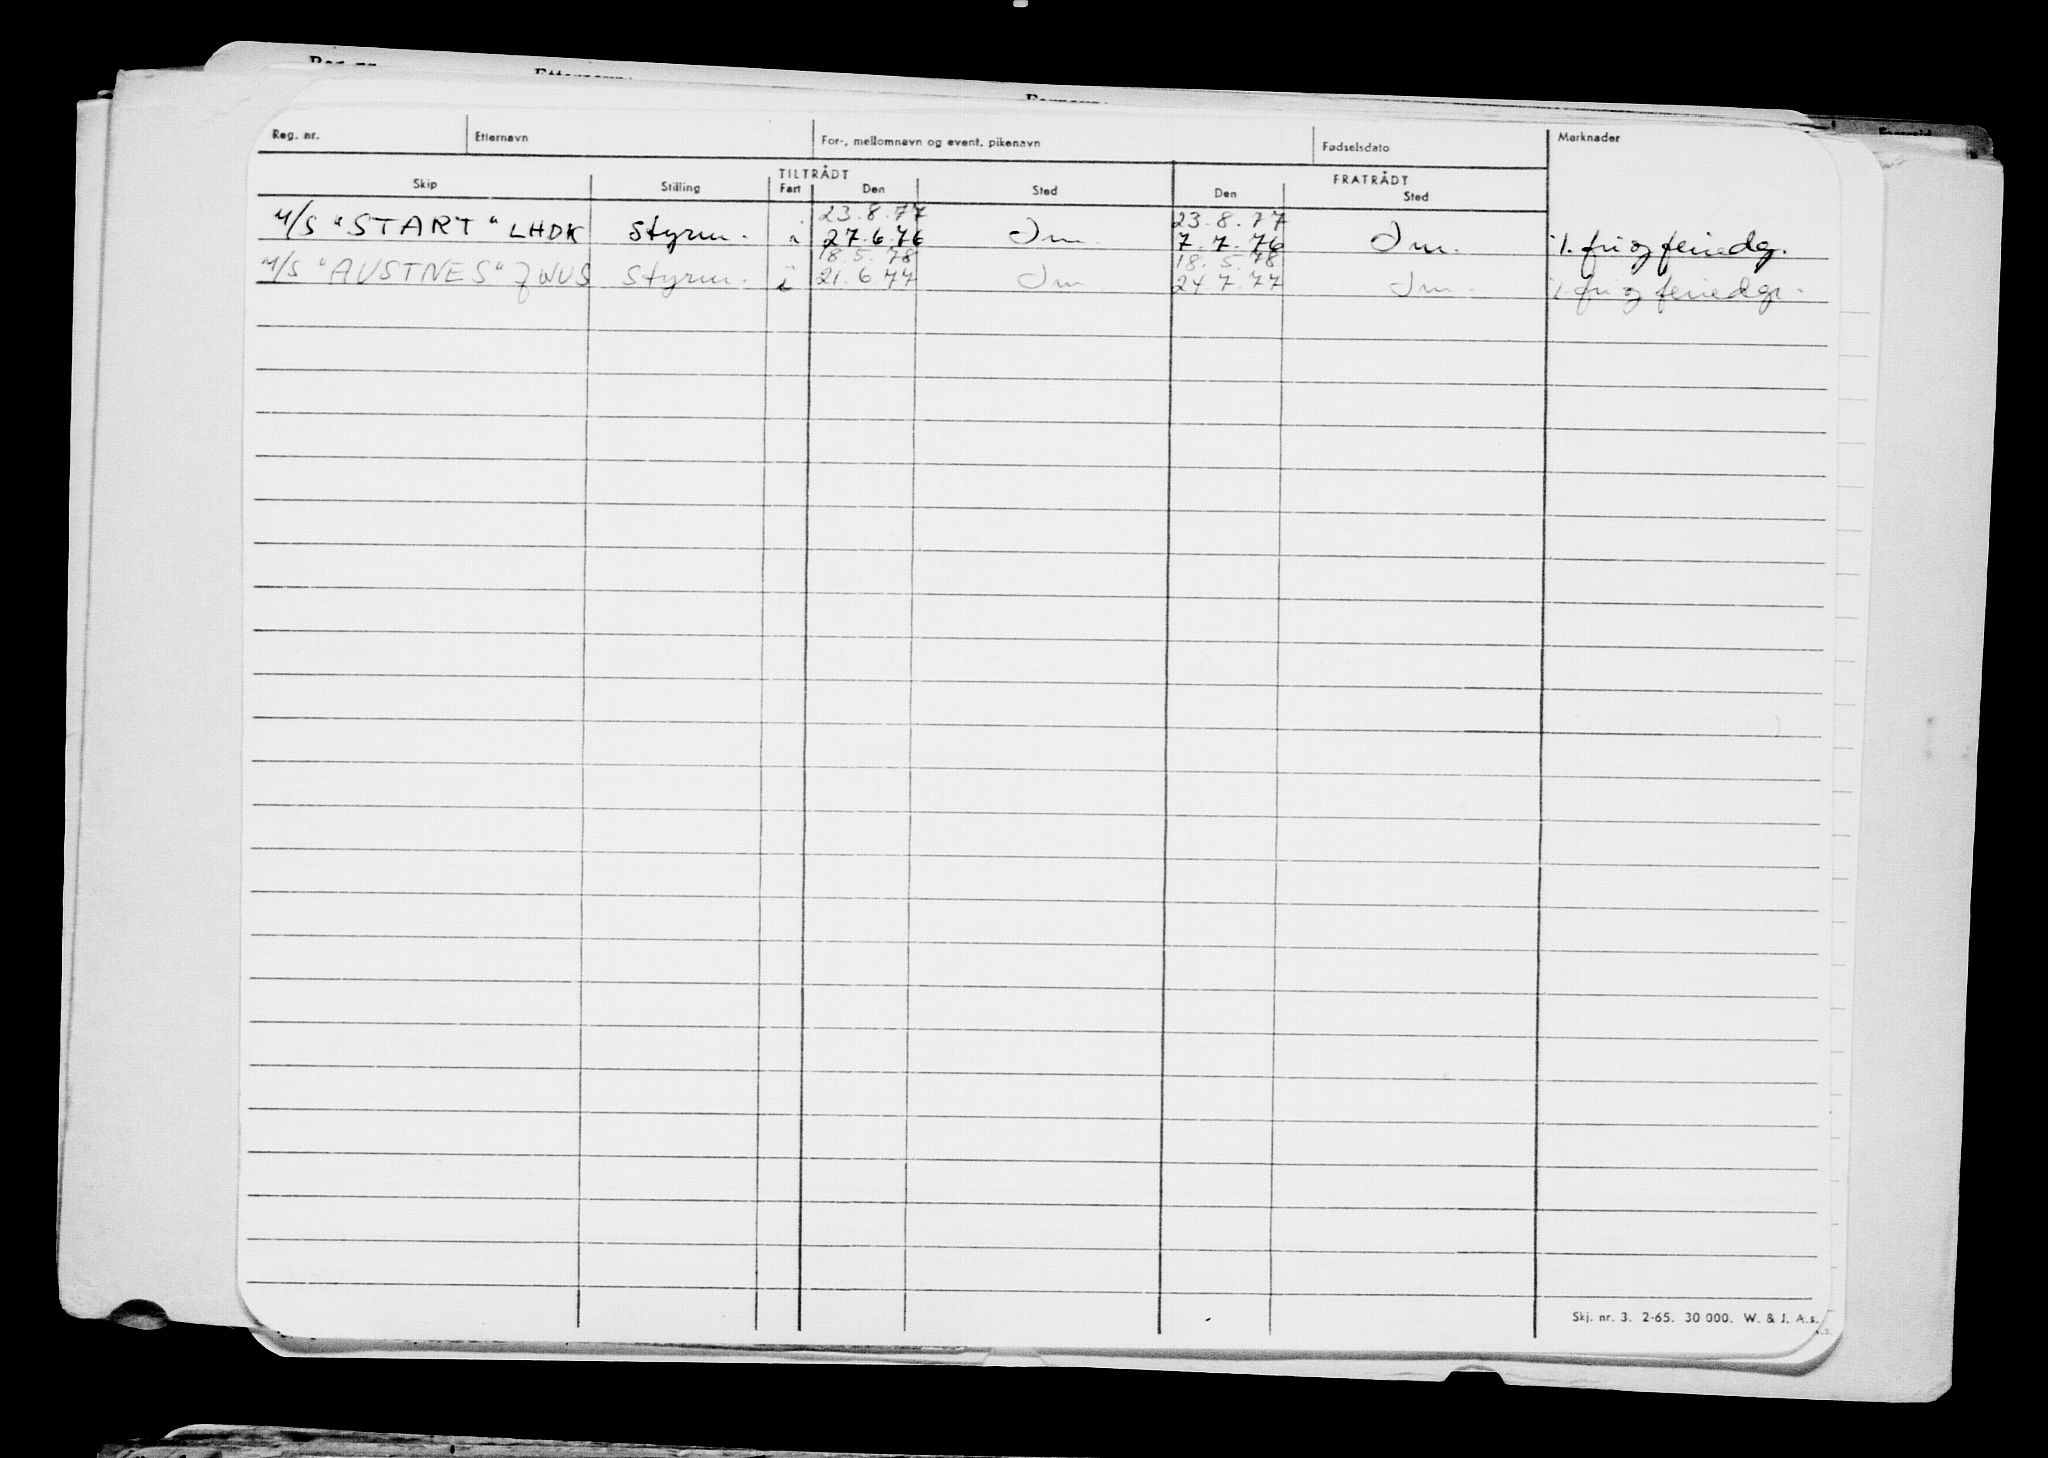 Reg. nr. Etternavn For-, mellomnavn og event. pikenavn Fødselsdato Merknader
TILTRÅDT FRATRÅDT
Skip Stilling Fart Den Sted Den Sted
23.8.77 23.8.77
M/S "START" LHDK Styrm. i 27.6.76 Inn. 7.7.76 Inn. i. fri og feriedg.
18.5.78 18.5.78
M/S "AUSTNES" JWUS Styrm. i 21.6.77 Inn. 24.7.77 Inn. i. fri og feriedgr.
Skj. nr. 3. 2-65. 30 000. W. & J. A.s.